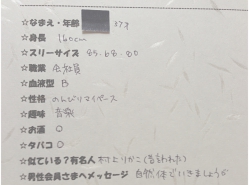 ☆なまえ・年齢 37才
☆身長 160cm
☆スリーサイズ 85.68.80
☆職業 会社員
☆血液型 B
☆性格 のんびりマイペース
☆趣味 音楽
☆お酒 ○
☆タバコ ○
☆似ている?有名人 村上りかこ(昔言われた)
☆男性会員さまへメッセージ 自然体でいきましょうが